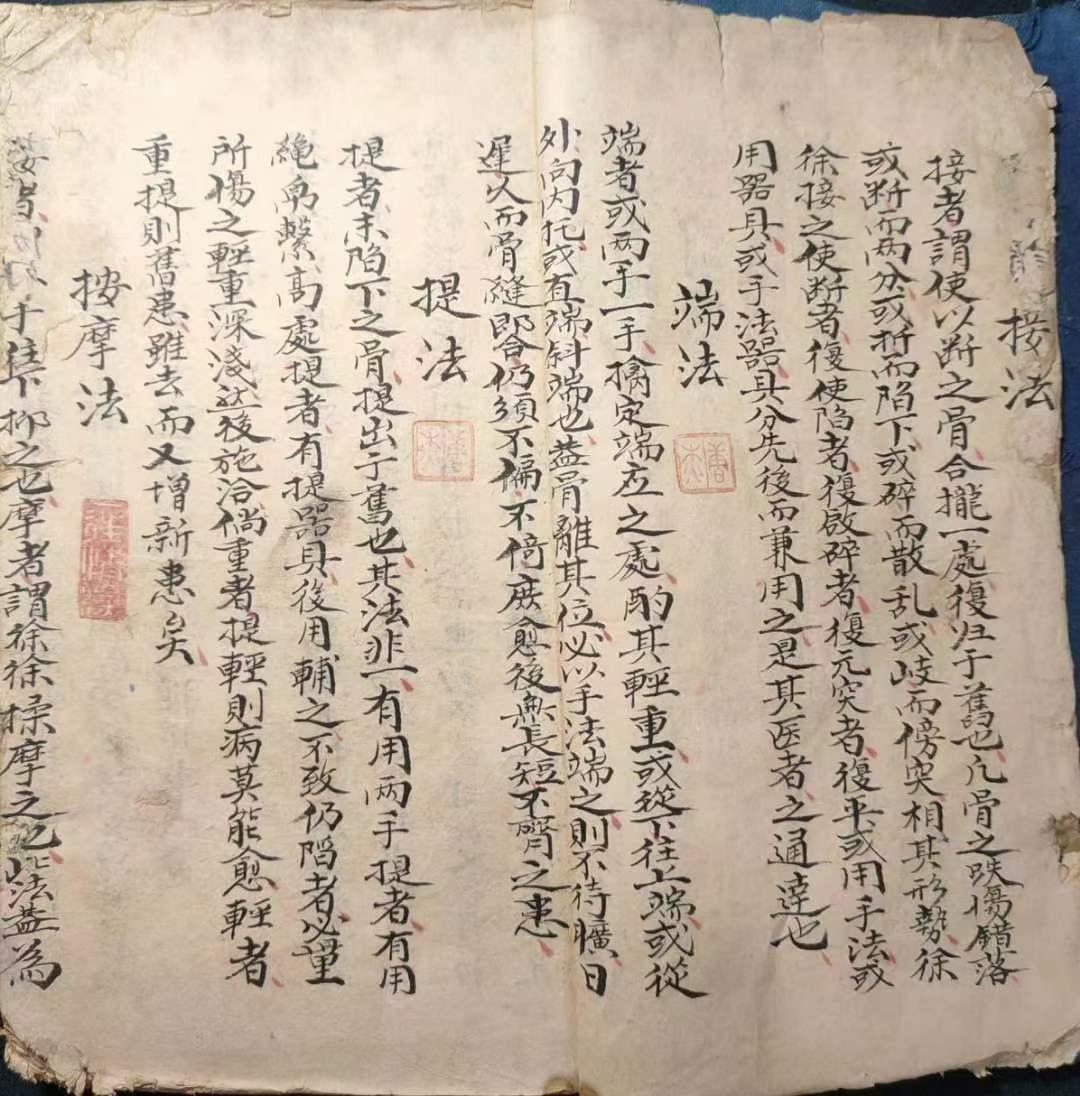 接法
接者謂使以断之骨合攏一處復归于舊也凡骨之跌傷錯落
或断而两分或折而陷下或碎而散乱或岐而傍突相其形勢徐
徐接之使断者復使陷者復啟碎者復元突者復平或用手法或
用器具或手法器具分先後而兼用之是其医者之通達也
端法
端者或两手一手擒定端立之處酌其輕重或從下往上端或從
外向内托或直端斜端也盖骨離其位必以手法端之則不待曠日
遲久而骨縫即合仍須不偏不倚庶愈後無長短不齊之患
提法
提者未陷下之骨提出于舊也其法非一有用两手提者有用
繩帛繫高處提者有提器具後用輔之不致仍陷者必量
所傷之輕重深淺然後施治倘重者提輕則病莫能愈輕者
重提則舊患雖去而又增新患矣
按摩法
手往下抑之也摩者謂徐徐揉摩之也此法盖為